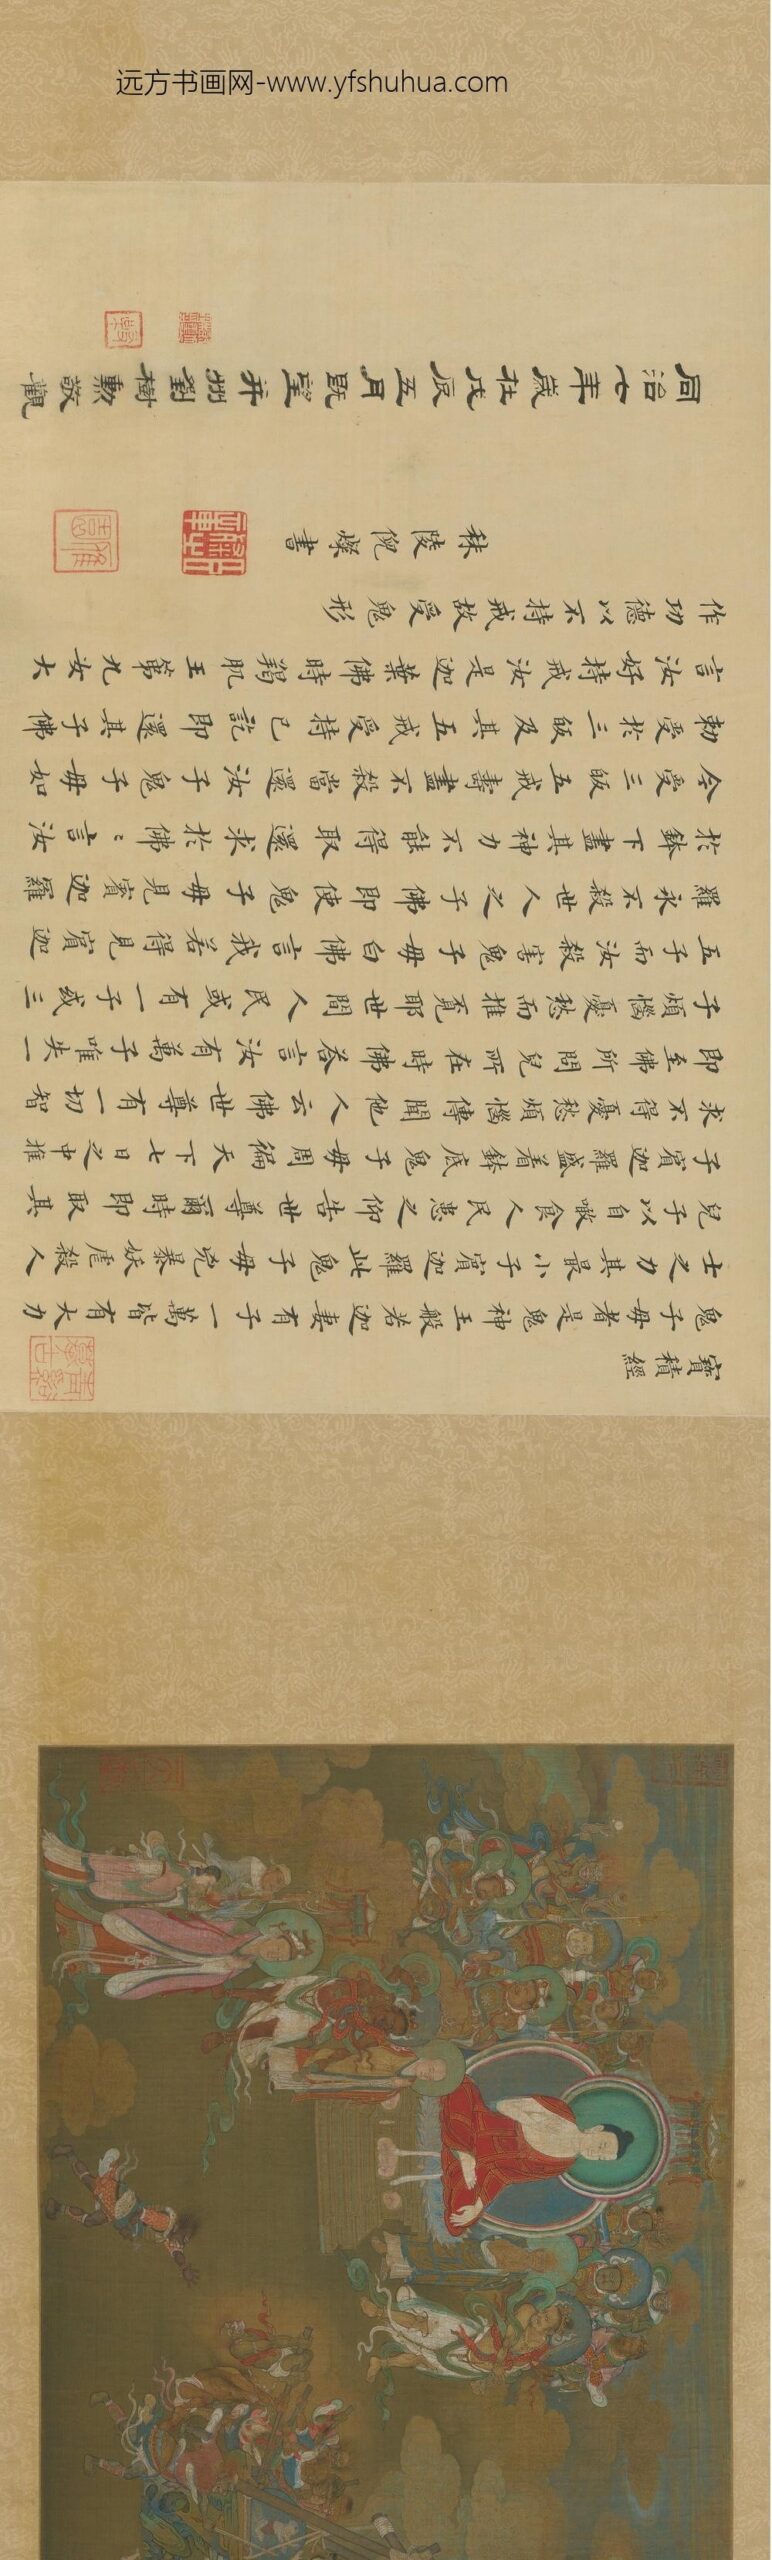 远方书画网-www.yfshuhua.com
寶積經
鬼子母者是鬼神王般若迦妻有子一萬皆有大力
士之力其最小子賓迦羅此鬼子母兇暴妖虐殺人
兒子以自噉食人民患之仰告世尊爾時即取其
子賓迦羅盛着鉢底鬼子母周徧天下七日之中推
求不得憂愁煩惱傳聞他人云佛世尊有一切智
即至佛所問兒所在時佛荅言汝有萬子唯失一
子煩惱憂愁而推覓耶世間人民或有一子或三
五子而汝殺害鬼子母白佛言我若得見賓迦
羅永不殺世人之子佛即使鬼子母見賓迦羅
於鉢下盡其神力不能得取還求於佛〻言汝
今受三皈五戒壽盡不殺當還汝子鬼子母如
勅受於三皈及其五戒受持已訖即還其子佛
言汝好持戒汝是迦葉佛時羯肌王第九女大
作功德以不持戒故受鬼形
秣陵倪燦書
同治七年歲在戊辰五月既望并州劉樹勳敬觀